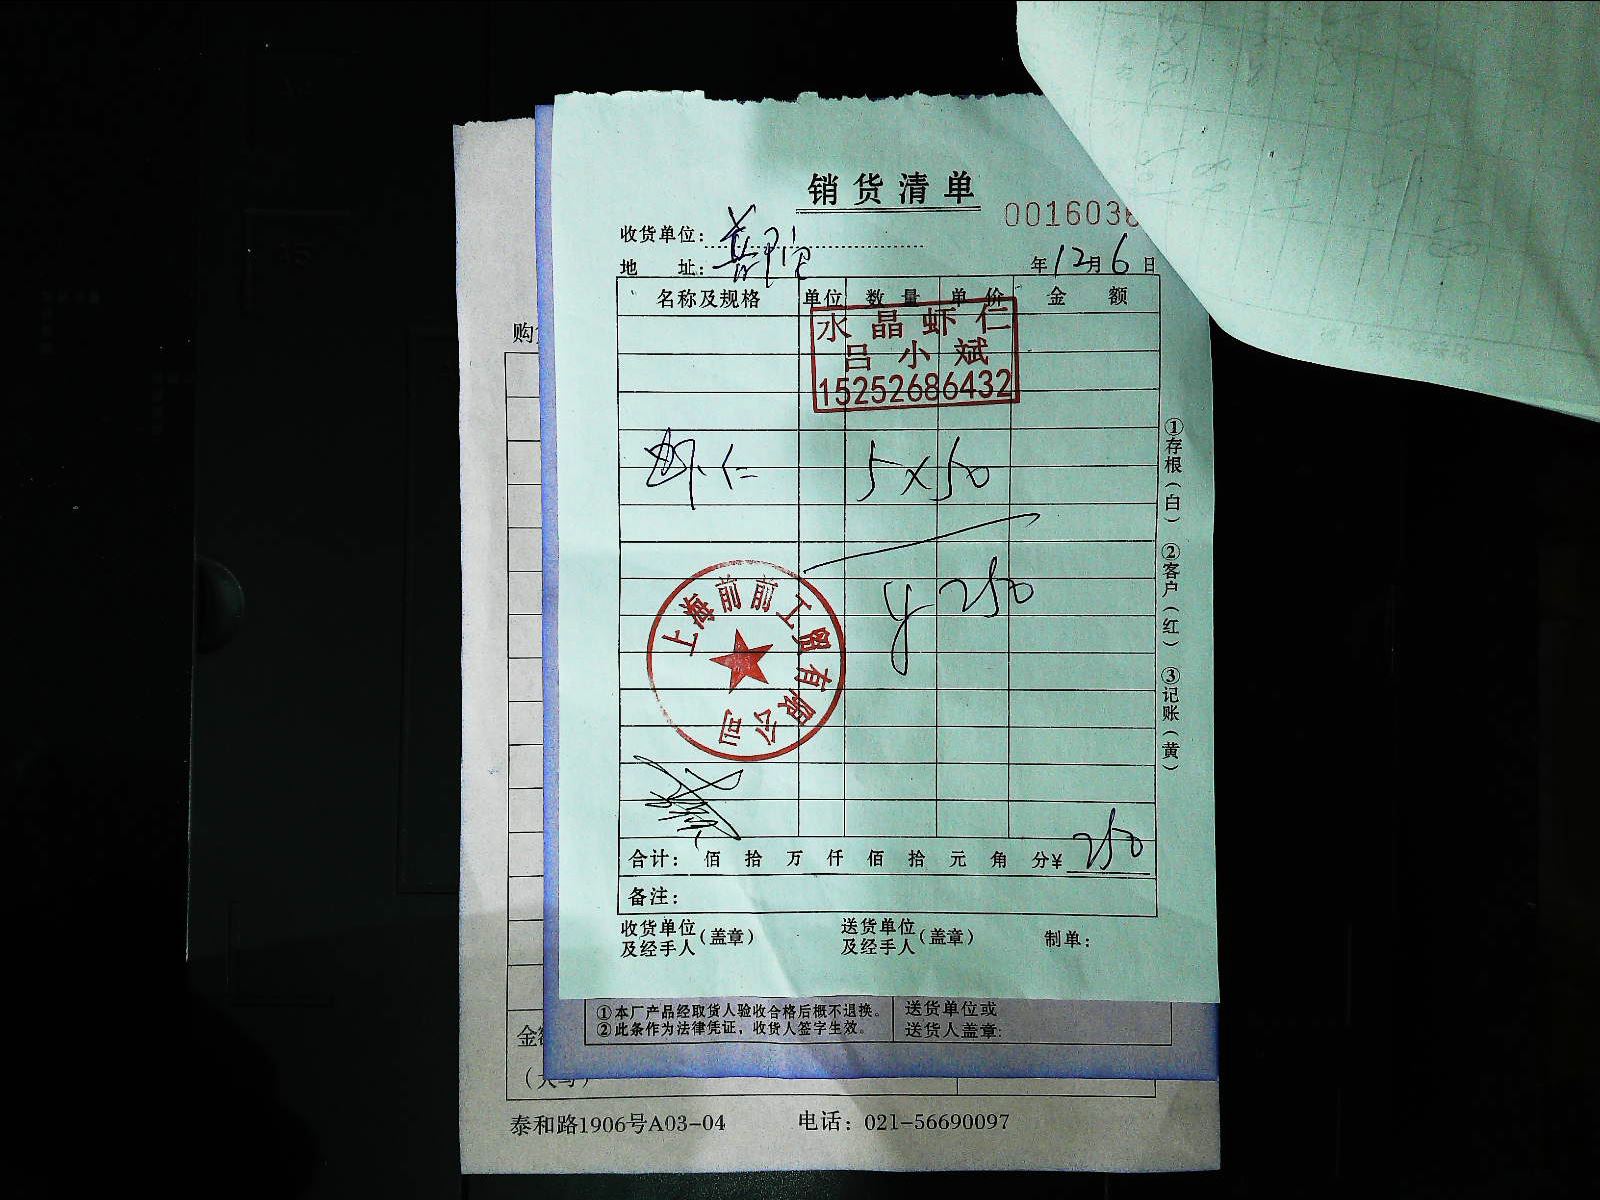 销货清单
001603
收货单位：
地 址： 年12月6日
名称及规格 单位 数量 单价 金额
水晶虾仁
吕小斌
15252686432
虾仁 5×50
¥250
上海前前工贸有限公司
合计： 佰 拾 万 仟 佰 拾 元 角 分¥ 250
备注：
收货单位及经手人（盖章） 送货单位及经手人（盖章） 制单：
①存根（白） ②客户（红） ③记账（黄）
①本厂产品经取货人验收合格后概不退换。
②此条作为法律凭证，收货人签字生效。
送货单位或
送货人盖章：
购
金
泰和路1906号A03-04 电话：021-56690097